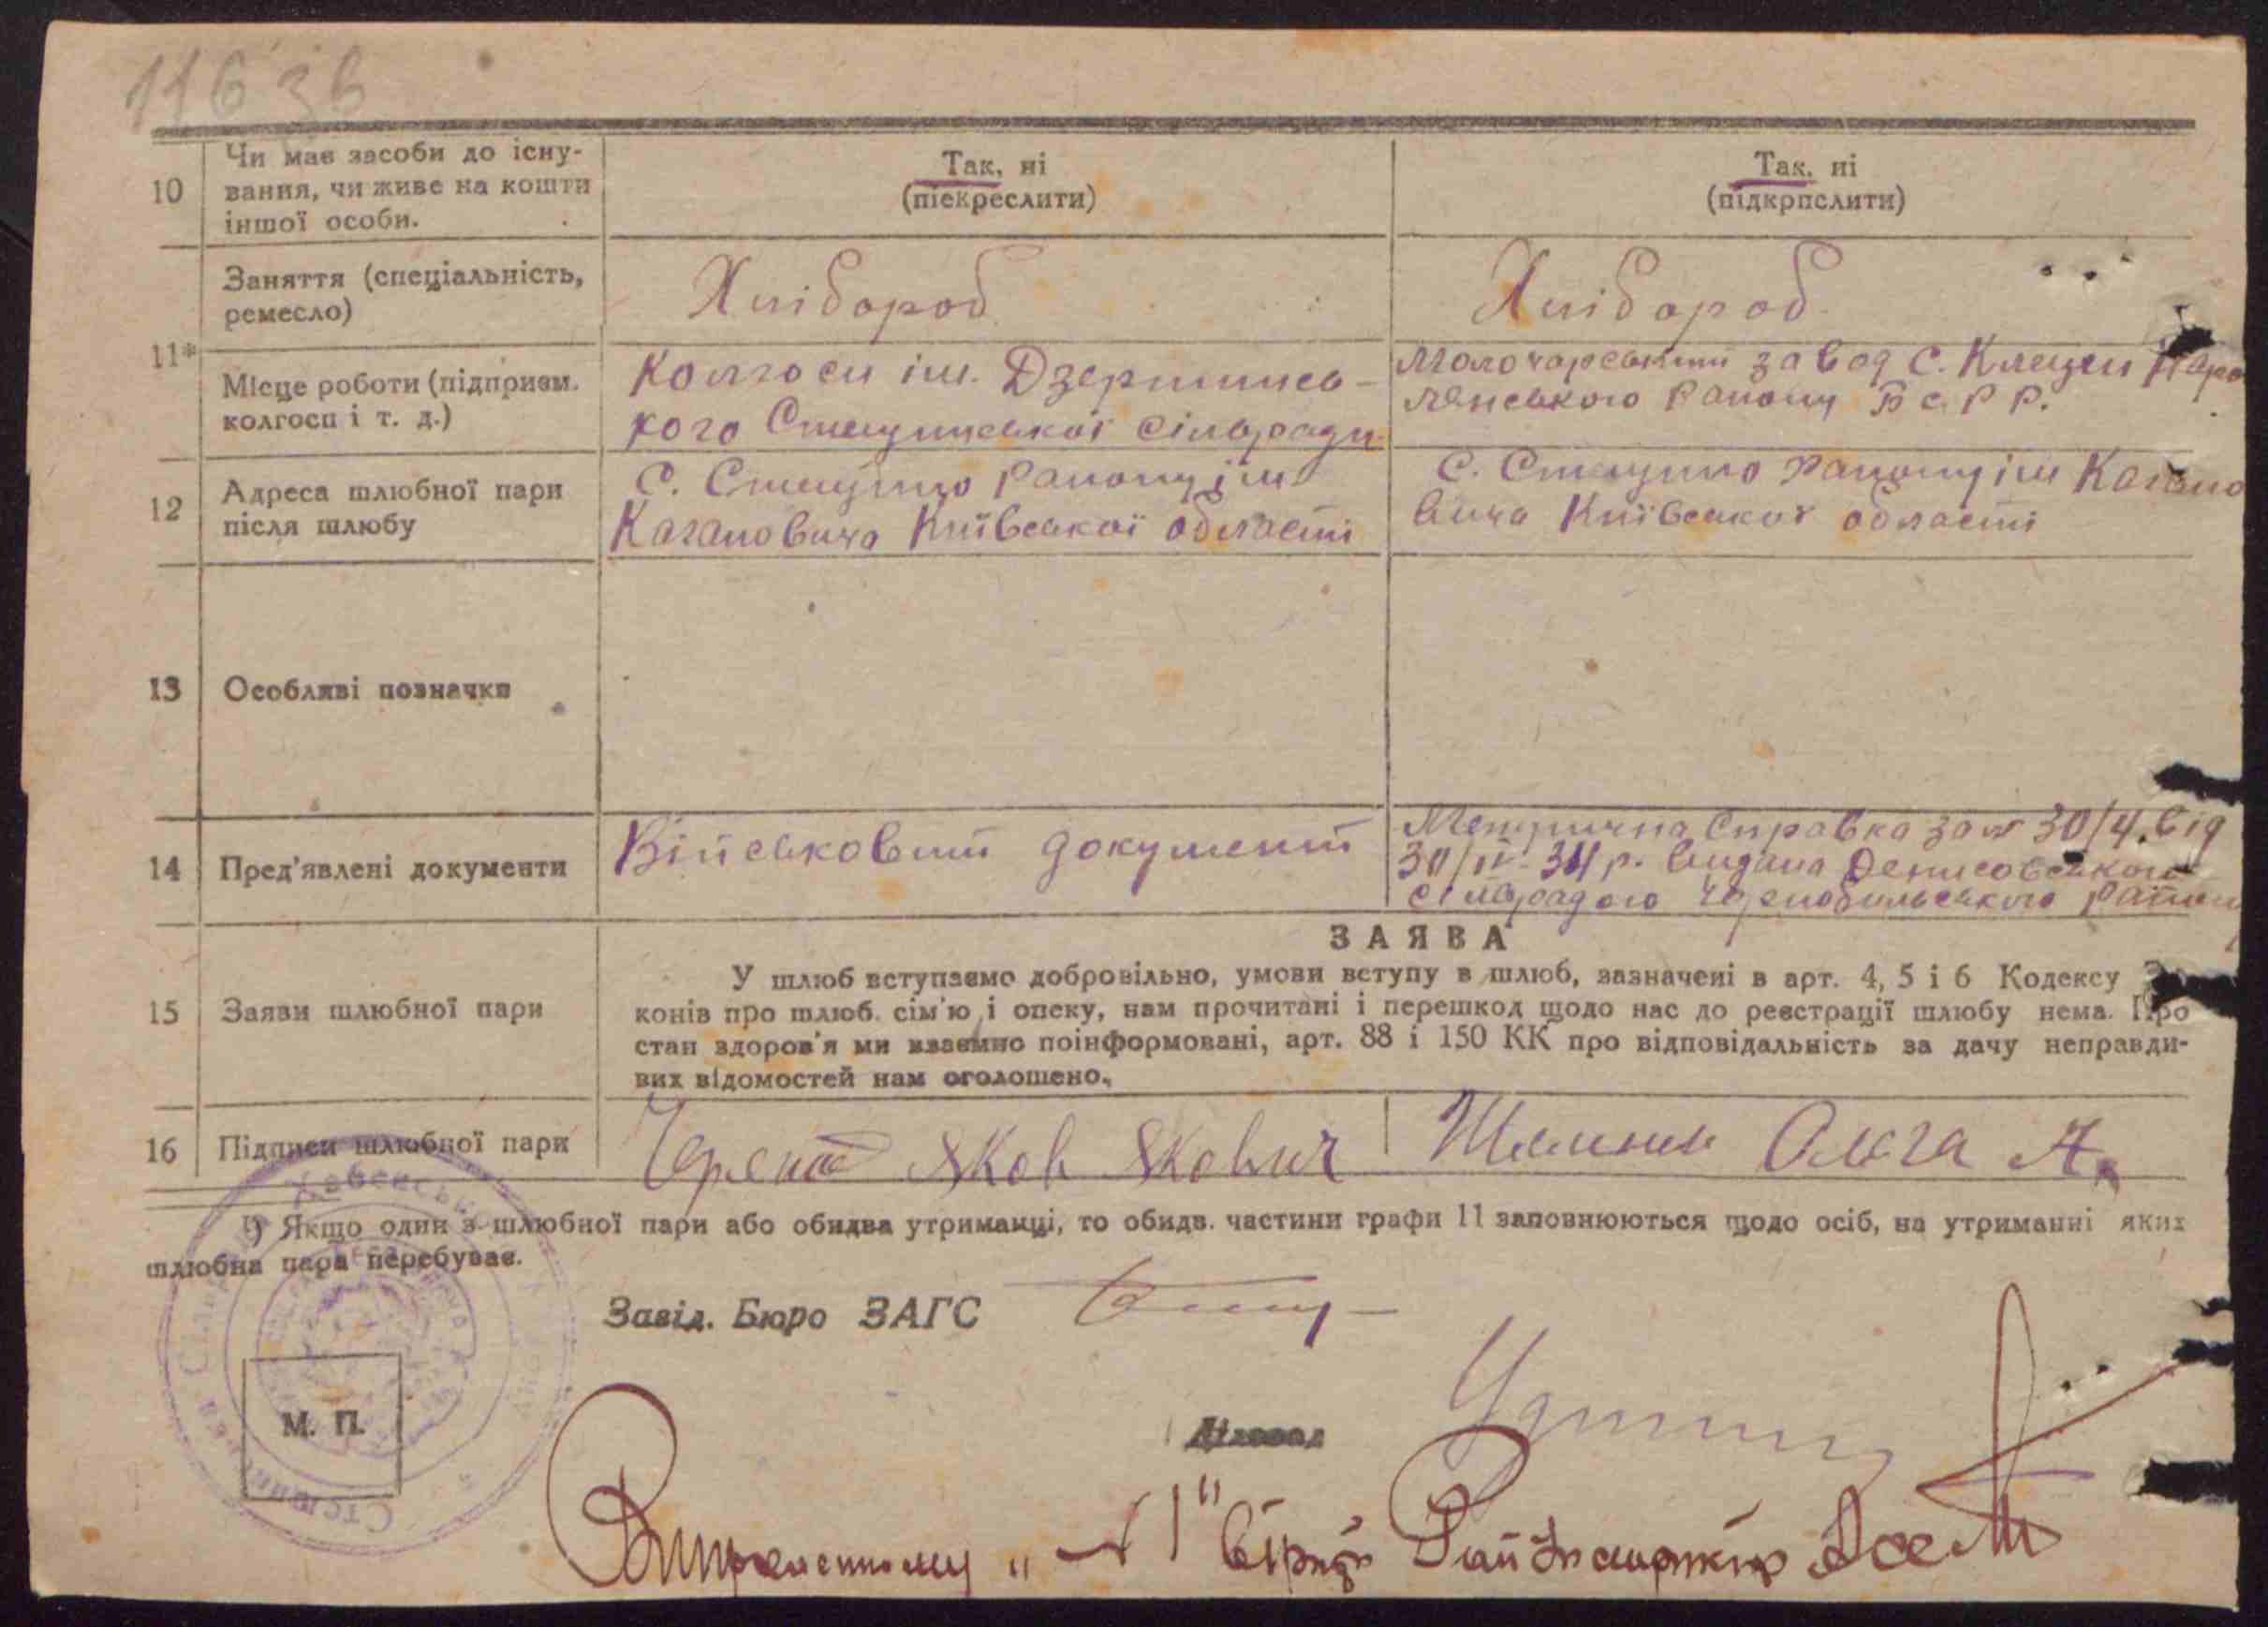 116 зв
10
Чи має засоби до існу-
вання, чи живе на кошти
іншої особи.
Так, ні
(піекреслити)
Так, ні
(підкрпслити)
11*
Заняття (спеціальність,
ремесло)
Хлібороб
Хлібороб
Місце роботи (підприєм.
колгосп і т. д.)
Колгосп ім. Дзержинсь-
кого Стещинської сільради
Молочарський завод с. Клещи Наро
лянського району БСРР.
12
Адреса шлюбної пари
після шлюбу
С. Стещино району ім
Кагановича Київської області
С. Стещино району ім Кагано
вича Київської області
13
Особливі позначки
14
Пред'явлені документи
Військовий документ
Метрична справка за № 30/4 від
30/IV-34 р. видана Денисовською
сільрадою Чорнобильського району
15
Заяви шлюбної пари
ЗАЯВА
У шлюб вступаємо добровільно, умови вступу в шлюб, зазначені в арт. 4, 5 і 6 Кодексу За-
конів про шлюб. сім'ю і опеку, нам прочитані і перешкод щодо нас до реєстрації шлюбу нема. Про
стан здоров'я ми взаємно поінформовані, арт. 88 і 150 КК про відповідальність за дачу неправди-
вих відомостей нам оголошено.
16
Підписи шлюбної пари
Яков Якович
Ольга А.
¹) Якщо один з шлюбної пари або обидва утриманці, то обидв. частини графи 11 заповнюються щодо осіб, на утриманні яких
шлюбна пара перебуває.
Завід. Бюро ЗАГС
М. П.
Діловод